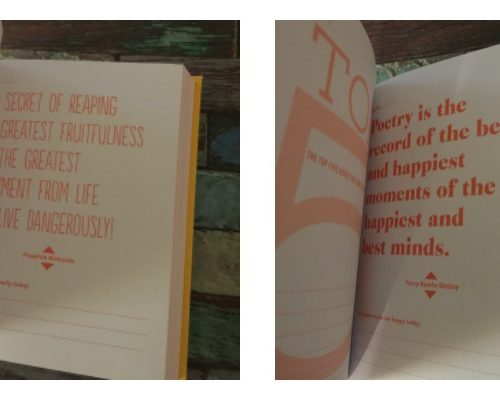 SECRET OF REAPING
GREATEST FRUITFULNESS
THE GREATEST
MENT FROM LIFE
LIVE DANGEROUSLY!
Friedrich Nietzsche
today:
TO
5
THE TOP FIVE
Poetry is the
record of the be
and happiest
moments of the
happiest and
best minds.
Percy Bysshe Shelley
made me happy today: